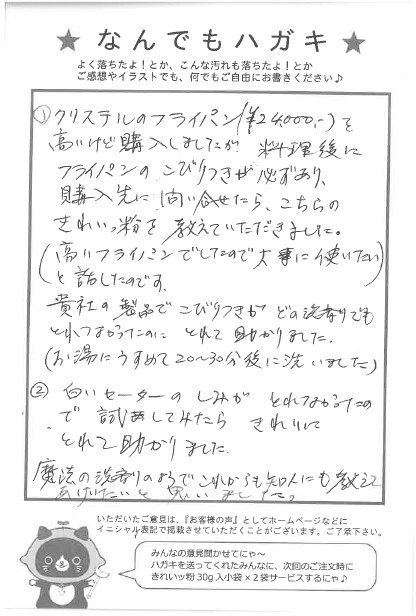 ★ なんでもハガキ ★
よく落ちたよ！とか、こんな汚れも落ちたよ！とか
ご感想やイラストでも、何でもご自由にお書きください♪
① クリステルのフライパン(¥24000,-)を
高いけど購入しましたが 料理後に
フライパンの こびりつきが 必ずあり、
購入先に 問い合せたら、こちらの
きれいっ粉を 教えていただきました。
(高いフライパンでしたので大事に使いたい)
と話したのです。
貴社の製品で こびりつきが どの洗剤でも
とれなかったのに とれて 助かりました。
(お湯にうすめて 20〜30分後に洗いました)
② 白いセーターの しみが とれなかったの
で 試しみてたら きれいに
とれて助かりました。
魔法の洗剤のようでこれからも知人にも教えて
あげたいと思いました。
いただいたご意見は、『お客様の声』としてホームページなどに
イニシャル表記で掲載させていただくことがございます。ご了承下さい。
みんなの意見聞かせてにゃ〜
ハガキを送ってくれたみんなに、次回のご注文時に
きれいッ粉 30g 入小袋×2袋サービスするにゃ♪